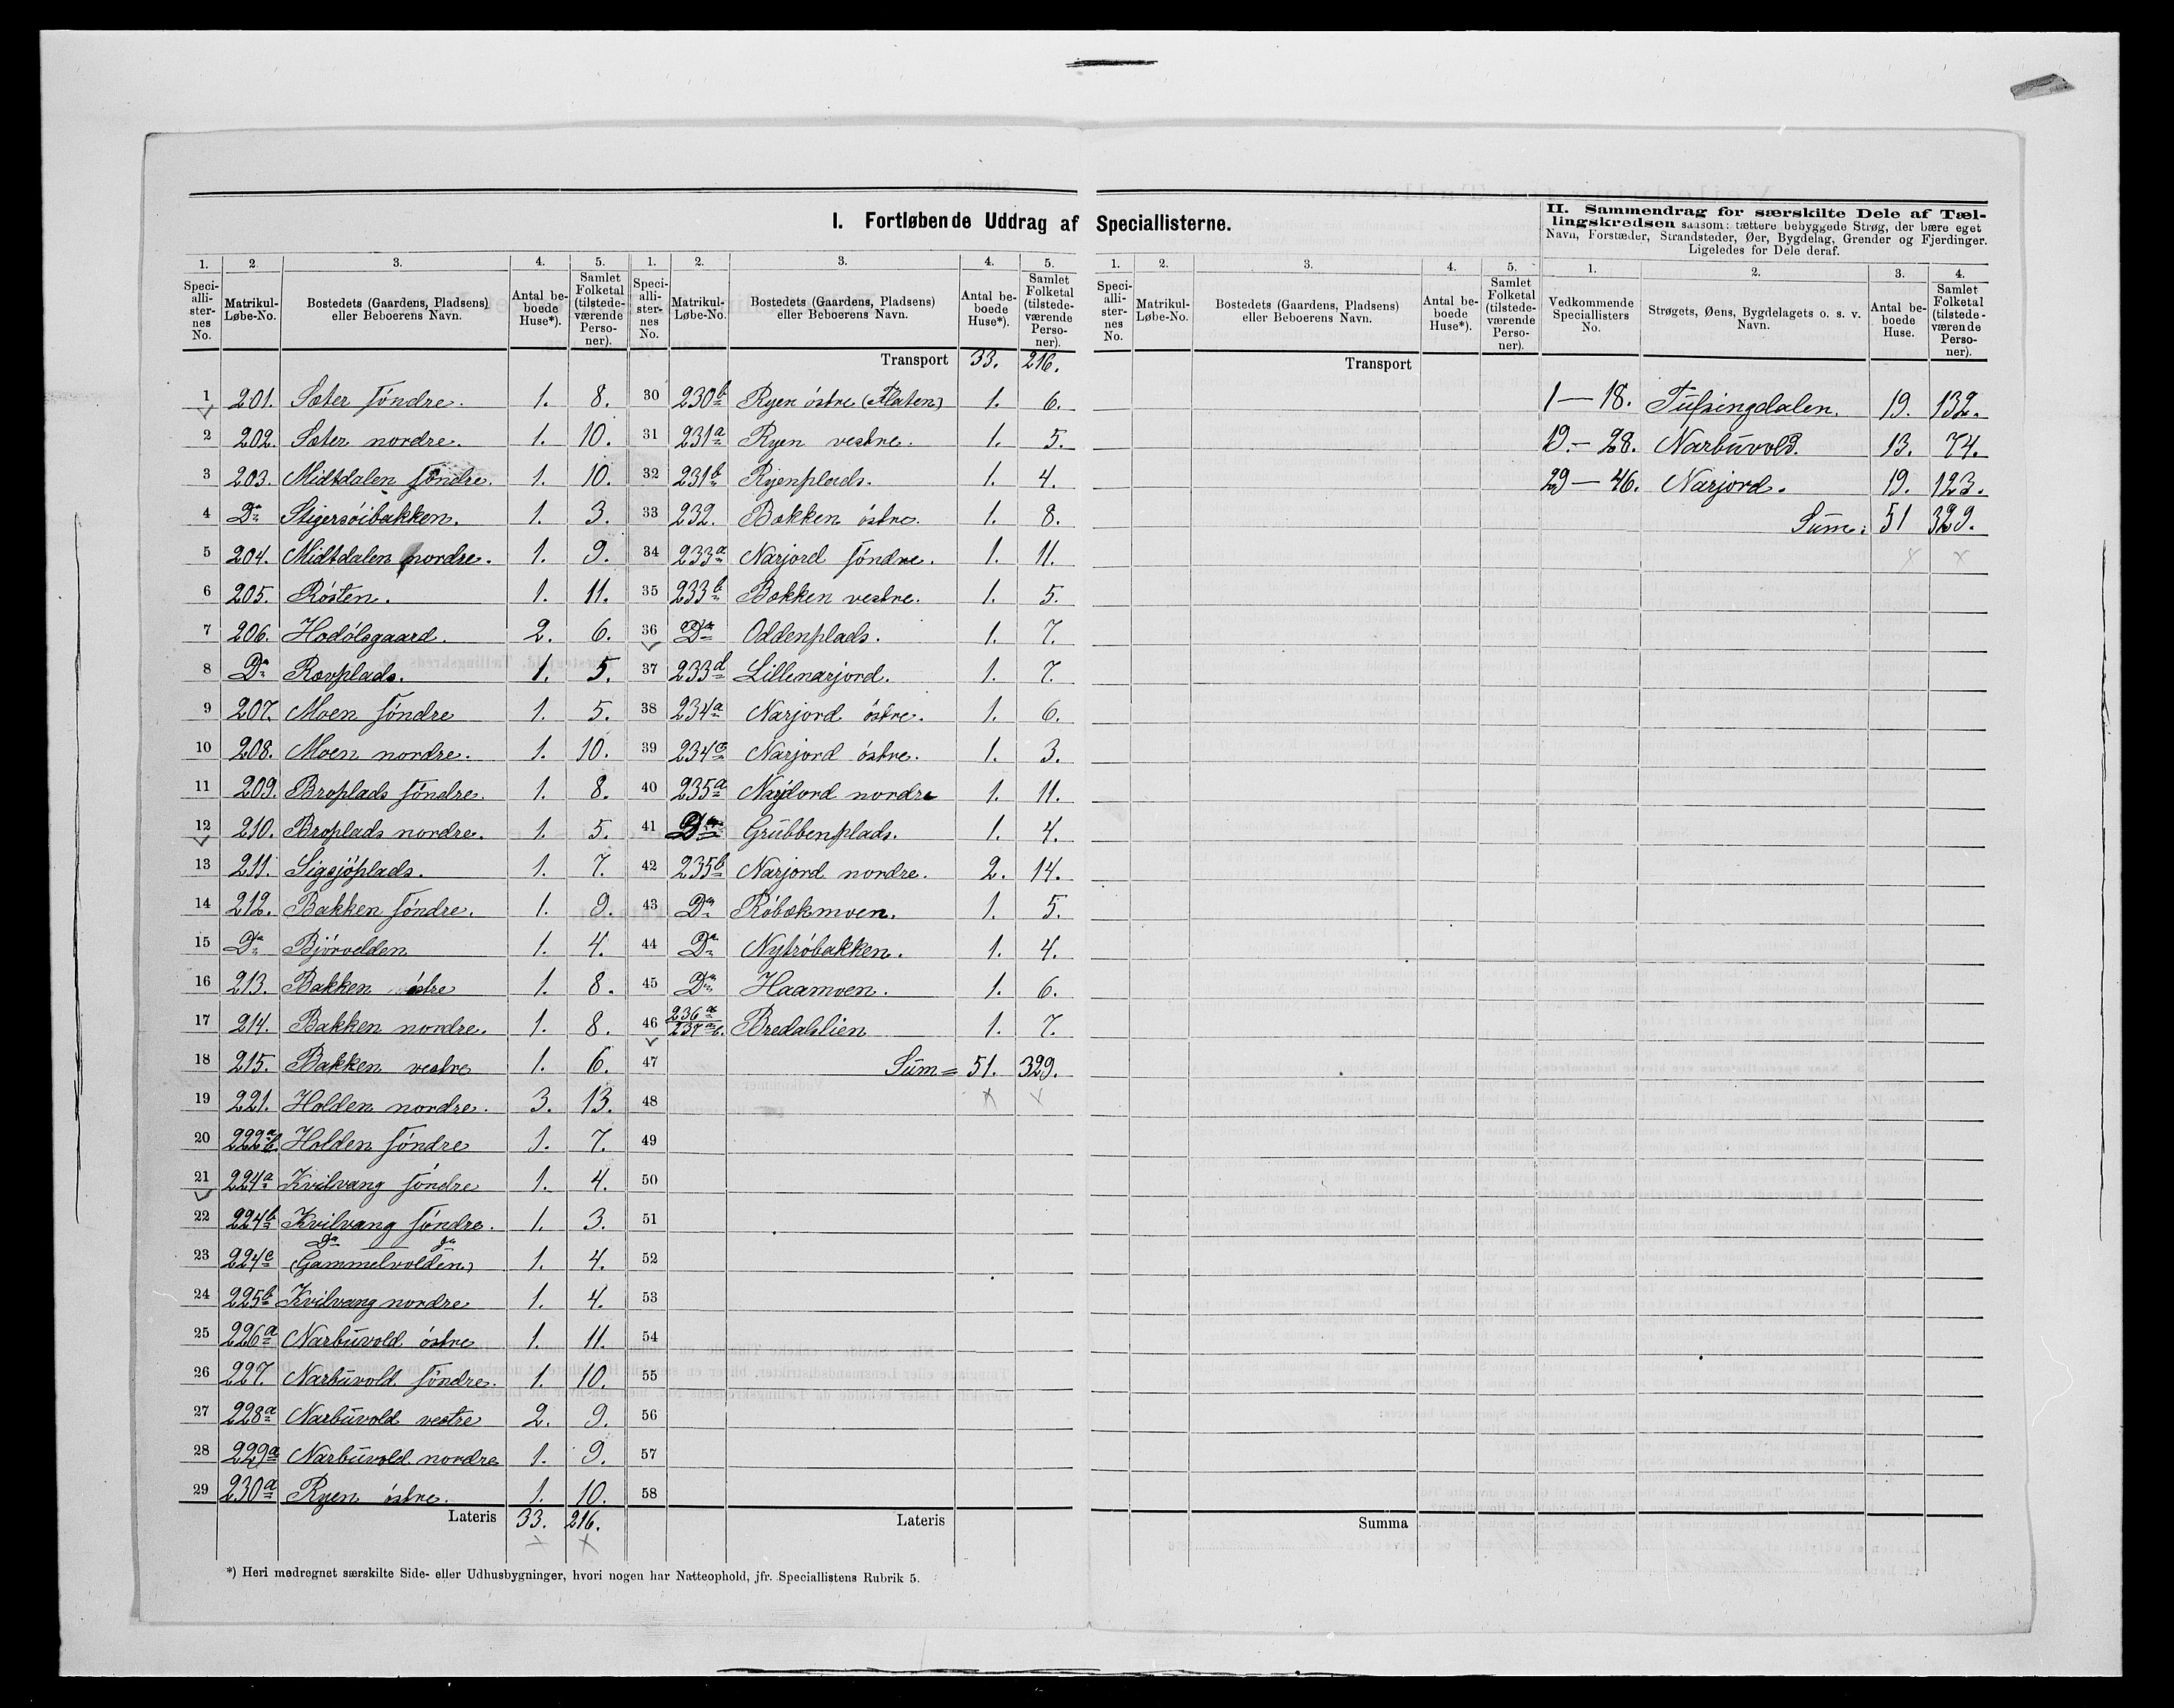 I. Fortløbende Uddrag af Speciallisterne.
II. Sammendrag for særskilte Dele af Tæl-
lingskredsen saasom: tættere bebyggede Strøg, der bære eget
Navn, Forstæder, Strandsteder, Øer, Bygdelag, Grender og Fjerdinger.
Ligeledes for Dele deraf.
1. 2. 3. 4. 5.
Speci-alli-ster-nes No. Matrikul-Løbe-No. Bostedets (Gaardens, Pladsens) eller Beboerens Navn. Antal be-boede Huse*). Samlet Folketal (tilstede-værende Perso-ner).
1 201. Sæter söndre. 1. 8.
2 202. Sæter nordre. 1. 10.
3 203. Midtdalen söndre. 1. 10.
4 Do Stigersöibakken. 1. 3.
5 204. Midtdalen nordre. 1. 9.
6 205. Rösten. 1. 11.
7 206. Hodölsgaard. 2. 6.
8 Do Rovplads. 1. 5.
9 207. Moen söndre 1. 5.
10 208. Moen nordre. 1. 10.
11 209. Broplads söndre. 1. 8.
12 210. Broplads nordre. 1. 5.
13 211. Sigsjöplads. 1. 7.
14 212. Bakken söndre. 1. 9.
15 Do Björvolden 1. 4.
16 213. Bakken östre 1. 8.
17 214. Bakken nordre. 1. 8.
18 215. Bakken vestre 1. 6.
19 221. Holden nordre. 3. 13.
20 222 a b. Holden söndre 1. 7.
21 224a Kvilvang söndre 1. 4.
22 224b Kvilvang söndre. 1. 3.
Do do
23 224c (Gammelvolden) 1. 4.
24 225b Kvilvang nordre 1. 4.
25 226a Narbuvold östre 1. 11.
26 227. Narbuvold söndre. 1. 10.
27 228a Narbuvold vestre 2. 9.
28 229a Narbuvold nordre 1. 9.
29 230a Ryen östre. 1. 10.
Lateris 33. 216.
*) Heri medregnet særskilte Side- eller Udhusbygninger, hvori nogen har Natteophold, jfr. Speciallistens Rubrik 5.
1. 2. 3. 4. 5.
Speci-alli-ster-nes No. Matrikul-Løbe-No. Bostedets (Gaardens, Pladsens) eller Beboerens Navn. Antal be-boede Huse*). Samlet Folketal (tilstede-værende Perso-ner).
Transport 33. 216.
30 230b Ryen östre (Flaten) 1. 6.
31 231a Ryen vestre. 1. 5.
32 231b Ryenplads. 1. 4.
33 232. Bakken östre. 1. 8.
34 233a Narjord söndre. 1. 11.
35 233b Bakken vestre. 1. 5.
36 Do Oddenplads. 1. 7.
37 233d Lillenarjord. 1. 7.
38 234a Narjord östre. 1. 6.
39 234c Narjord östre. 1. 3.
40 235a Narjord nordre 1. 11.
41 Do Grubbenplads. 1. 4.
42 235b Narjord nordre. 2. 14.
43 Do Röbækmoen. 1. 5.
44 Do Nytröbakken. 1. 4.
45 Do Haamoen. 1. 6.
46 236a 237 a b. Bredahlien 1. 7.
47 Sum = 51. 329.
48
49
50
51
52
53
54
55
56
57
58
Lateris
1. 2. 3. 4. 5.
Speci-alli-ster-nes No. Matrikul-Løbe-No. Bostedets (Gaardens, Pladsens) eller Beboerens Navn. Antal be-boede Huse*). Samlet Folketal (tilstede-værende Perso-ner).
Transport
Summa
1. 2. 3. 4.
Vedkommende Speciallisters No. Strøgets, Øens, Bygdelagets o. s. v. Navn. Antal be-boede Huse. Samlet Folketal (tilstede-værende Perso-ner).
1 — 18. Tufsingdalen. 19. 132.
19 — 28. Narbuvold. 13. 74.
29 — 46. Narjord. 19. 123.
Sum: 51 329.